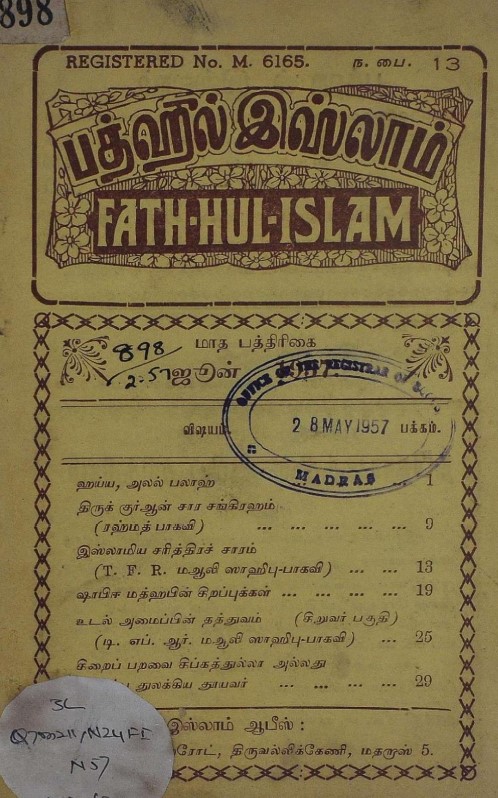 898
REGISTERED No. M. 6165. ந. பை. 13
பத்ஹுல் இஸ்லாம்
FATH-HUL-ISLAM
மாத பத்திரிகை
898
2.57
ஜூன்
OFFICE OF THE REGISTRAR OF
28 MAY 1957
MADRAS
விஷயம். பக்கம்.
ஹய்ய, அலல் பலாஹ் ... 1
திருக் குர்ஆன் சார சங்கிரஹம்
(ரஹ்மத் பாகவி) ... ... ... ... ... 9
இஸ்லாமிய சரித்திரச் சாரம்
(T. F. R. மஆலி ஸாஹிபு-பாகவி) ... ... 13
ஷாபிஈ மத்ஹபின் சிறப்புக்கள் ... ... ... ... 19
உடல் அமைப்பின் தத்துவம் (சிறுவர் பகுதி)
(டி. எப். ஆர். மஆலி ஸாஹிபு-பாகவி) ... 25
சிறைப் பறவை சிபகத்துல்லா அல்லது
துலக்கிய தூயவர் ... ... ... ... 29
இஸ்லாம் ஆபீஸ் :
ரோட், திருவல்லிக்கேணி, மதராஸ் 5.
3L
N57